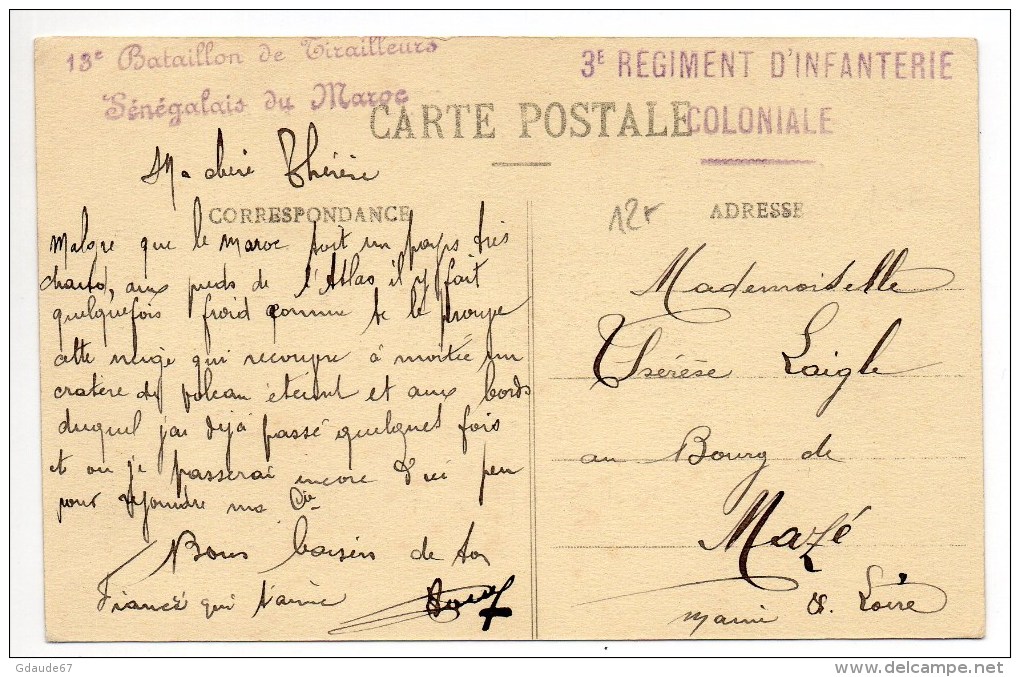 13e Bataillon de Tirailleurs
Sénégalais du Maroc
3E REGIMENT D'INFANTERIE
COLONIALE
CARTE POSTALE
Ma chère Thérèse
CORRESPONDANCE
Malgré que le Maroc soit un pays très
chaud, aux pieds de l'Atlas il y fait
quelquefois froid comme te le prouve
cette neige qui recouvre à moitié un
cratère du volcan éteint et aux bords
duquel j'ai déjà passé quelques fois
et où je passerai encore d'ici peu
pour rejoindre ma Cie
Bons baisers de ton
Fiancé qui t'aime
12r
ADRESSE
Mademoiselle
Thérèse Laigle
au Bourg de
Mazé
Maine & Loire
Gdaude67
www.delcampe.net